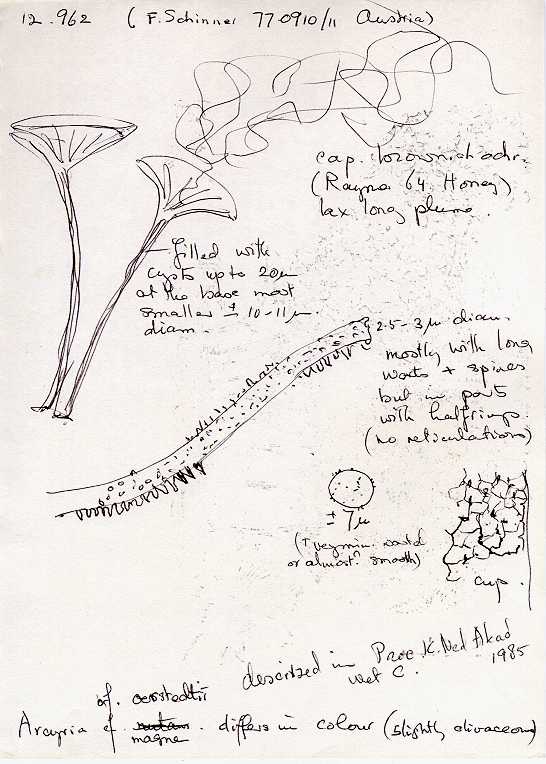 12.962 ( F. Schinner 770910/11 Austria)
cap. brownish ochr.
(Rayner 64. Honey)
lax long plume.
filled with
cysts up to 20µ
at the base most
smaller ± 10-11 µ.
diam.
2.5-3 µ diam.
mostly with long
warts + spines
but in part
with halfrings.
(no reticulations)
± 7µ
(± very min. warted
or almost smooth)
cup.
described in Proc. K. Ned Akad
Wet C. 1985
cf. oerstedtii
Arcyria cf. magna . differs in colour (slightly olivaceous)